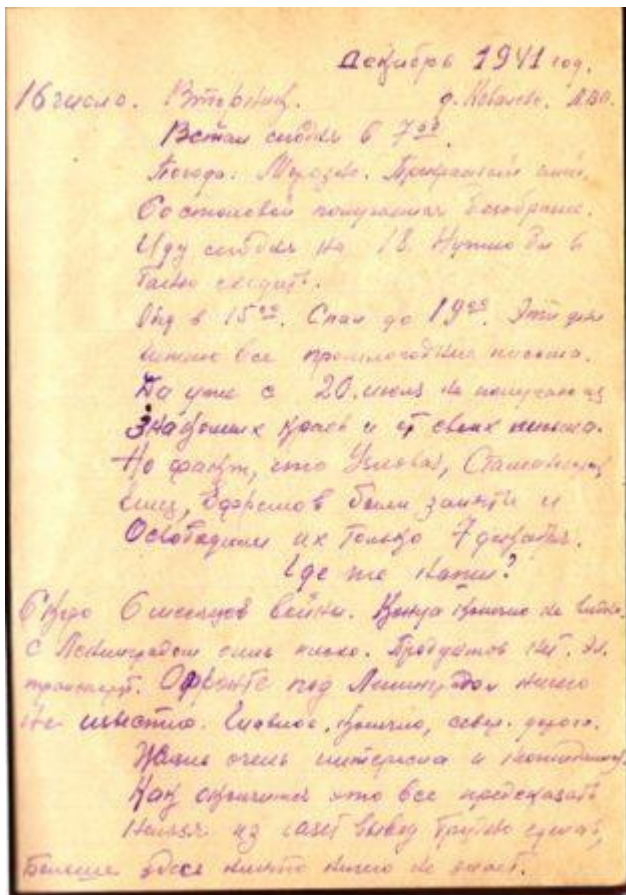 Декабрь 1941 год.
16 число. Вторник. д. Ковалево. ЛВО.
Встал сегодня в 7⁰⁰.
Погода: Морозно. Прекрасный
Со столовой получается безобразие.
Иду сегодня на 18. Нужно бы в
баню сходить.
в 15⁰⁰. Спал до 19⁰⁰. Эти дни
читаю все прошлогодние письма.
Да уже с 20. июля не получаю из
знакомых краев и от своих письма.
Но факт, что Узловая, Сталиногорск
Елец, Ефремов были заняты и
Освободили их только 7 декабря.
Где же наши?
Скоро 6 месяцев войны. Конца конечно не видно.
С Ленинградом очень плохо. Продуктов нет. Эл.
транспорт. О фронте под Ленинградом ничего
не известно. Главное, конечно, север. дорога.
Жизнь очень интересна и
Как окончится это все предсказать
нельзя. из газет вывод трудно сделать,
Больше здесь никто ничего не знает.